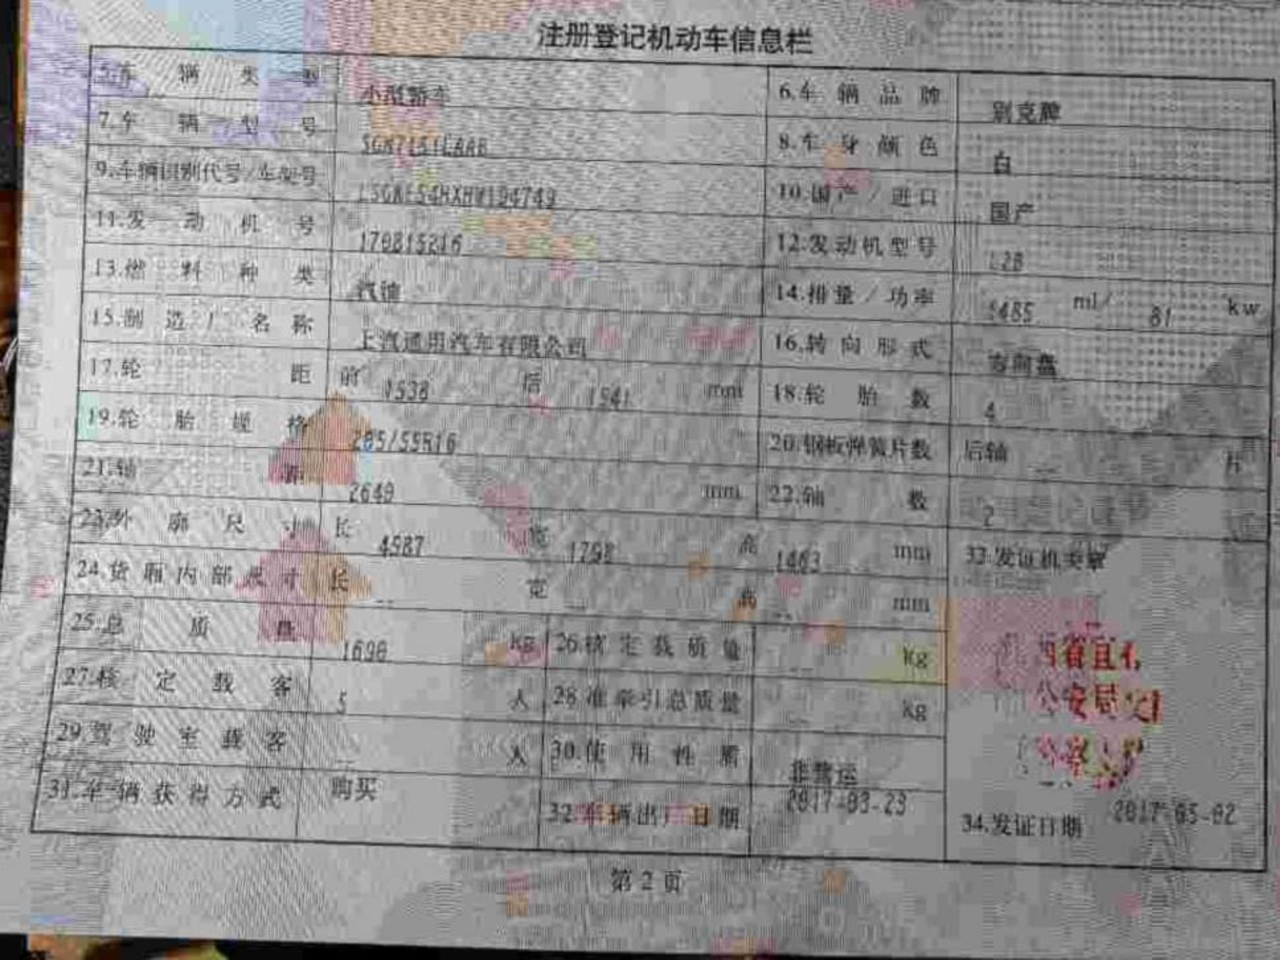 注册登记机动车信息栏
5.车辆类型 小型轿车 6.车辆品牌 别克牌
7.车辆型号 8.车身颜色 白
9.车辆识别代号/车架号 10.国产/进口 国产
11.发动机号 12.发动机型号 L2B
13.燃料种类 汽油 14.排量/功率 1485 ml/ 81 kw
15.制造厂名称 上汽通用汽车有限公司 16.转向形式 方向盘
17.轮距 前 1538 后 1541 mm 18.轮胎数 4
19.轮胎规格 205/55R16 20.钢板弹簧片数 后轴 -- 片
21.轴距 2640 mm 22.轴数 2
23.外廓尺寸 长 4587 宽 1798 高 1463 mm 33.发证机关章
24.货厢内部尺寸 长 -- 宽 -- 高 -- mm
25.总质量 kg 26.核定载质量 -- kg
27.核定载客 5 人 28.准牵引总质量 kg
公安局交
29.驾驶室载客 人 30.使用性质 非营运
31.车辆获得方式 购买 32.车辆出厂日期 2017-03-23 34.发证日期 2017-05-02
第2页